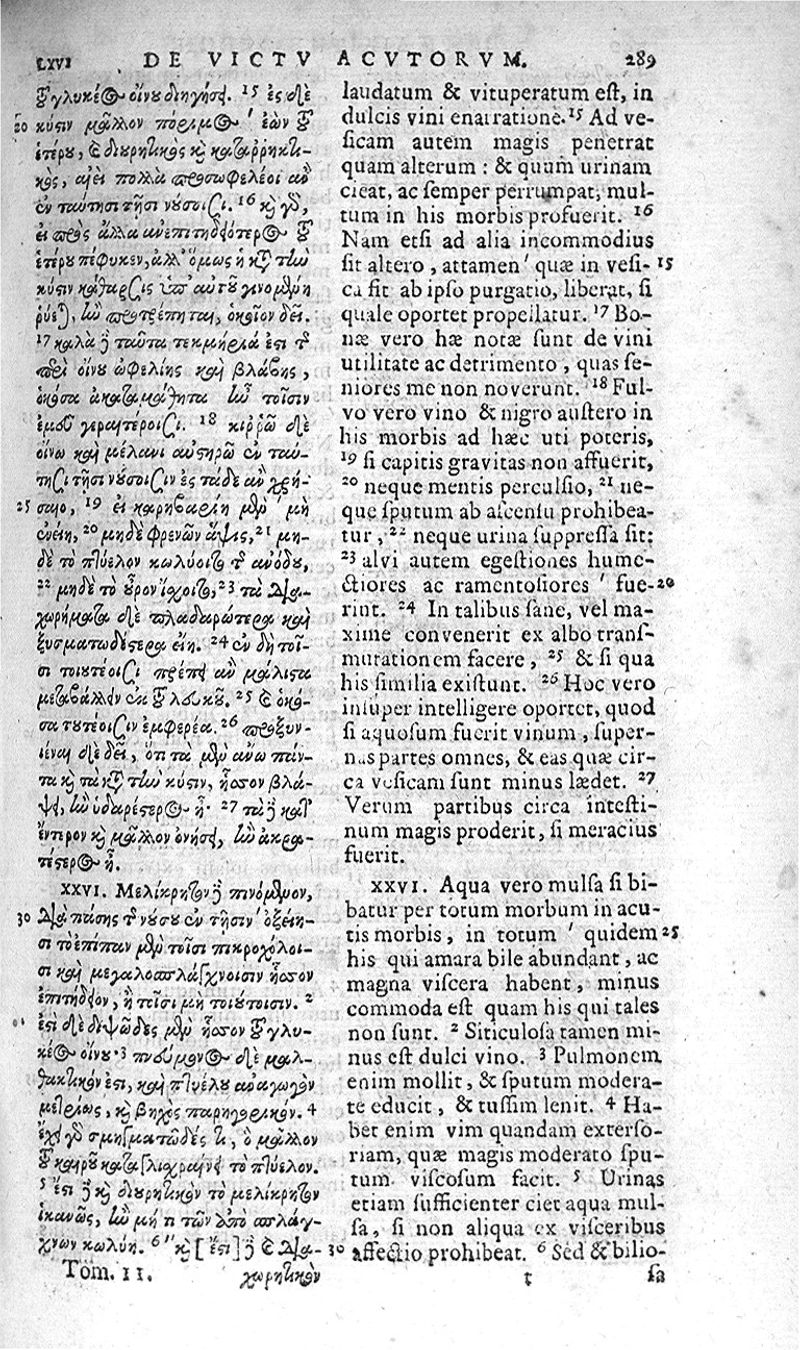 LXVI DE VICTV ACVTORVM. 289
τοῦ γλυκέος οἴνου διηγήσει. 15 ἐς δὲ
20 κύστιν μᾶλλον πόριμος ' ἐὼν τοῦ
ἑτέρου, καὶ διουρητικὸς καὶ καταρρηκτι-
κὸς, αἰεὶ πολλὰ προσωφελέοι ἂν
ἐν ταύτησι τῆσι νούσοισι. 16 καὶ γὰρ,
εἰ πρὸς ἄλλα ἀνεπιτηδειότερος τοῦ
ἑτέρου πέφυκεν, ἀλλ' ὅμως ἡ κατὰ τὴν
κύστιν κάθαρσις ὑπ' αὐτοῦ γινομένη
ῥύεται, ἢν προτρέπηται, ὁκοῖον δεῖ.
17 καλὰ δὲ ταῦτα τεκμήρια ἐστὶ τῆς
περὶ οἴνου ὠφελίης καὶ βλάβης,
ὁκόσα ἀκαταμάθητα ἦν τοῖσιν
ἐμεῦ γεραιτέροισι. 18 κιρρῷ δὲ
οἴνῳ καὶ μέλανι αὐστηρῷ ἐν ταύ-
τησι τῆσι νούσοισιν ἐς τάδε ἂν χρή-
25 σαιο, 19 εἰ καρηβαρίη μὲν ' μὴ
ἐνείη, 20 μηδὲ φρενῶν ἅψις, 21 μη-
δὲ τὸ πτύελον κωλύοιτο τῆς ἀνόδου,
22 μηδὲ τὸ οὖρον ἴσχοιτο, 23 τὰ δια-
χωρήματα δὲ πλαδαρώτερα καὶ
ξυσματωδέστερα εἴη. 24 ἐν δὴ τοῖ-
σι τοιουτέοισι πρέπει ἂν μάλιστα
μεταβάλλειν ἐκ τοῦ λευκοῦ. 25 καὶ ὁκό-
σα τουτέοισιν ἐμφερέα. 26 προξυν-
ιέναι δὲ δεῖ, ὅτι τὰ μὲν ἄνω πάν-
τα καὶ τὰ κατὰ τὴν κύστιν, ἧσσον βλά-
ψει, ἢν ὑδαρέστερος ᾖ· 27 τὰ δὲ κατ'
ἔντερον καὶ μᾶλλον ὀνήσει, ἢν ἀκρα-
τέστερος ᾖ.
XXVI. Μελίκρητον δὲ πινόμενον,
30 διὰ πάσης τῆς νούσου ἐν τῆσιν ' ὀξείη-
σι τὸ ἐπίπαν μὲν τοῖσι πικροχόλοι-
σι καὶ μεγαλοσπλάγχνοισιν ἧσσον
ἐπιτήδειον, ἢ τοῖσι μὴ τοιούτοισιν. 2
ἐστὶ δὲ διψῶδες μὲν ἧσσον τοῦ γλυ-
κέος οἴνου· 3 πνεύμονος δὲ μαλ-
θακτικόν ἐστι, καὶ πτυέλου ἀναγωγὸν
μετρίως, καὶ βηχὸς παρηγορικόν. 4
ἔχει γὰρ σμηγματῶδές τι, ὃ μᾶλλον
τοῦ καιροῦ καταγλισχραίνει τὸ πτύελον.
5 ἔστι δὲ καὶ διουρητικὸν τὸ μελίκρητον
ἱκανῶς, ἢν μή τι τῶν ἀπὸ σπλάγ-
χνων κωλύῃ. 6 '' καὶ [ἔστι] δὲ καὶ δια-
Tom. II. χωρητικὸν
laudatum & vituperatum est, in
dulcis vini enarratione. 15 Ad ve-
sicam autem magis penetrat
quam alterum : & quum urinam
cieat, ac semper perrumpat, mul-
tum in his morbis profuerit. 16
Nam etsi ad alia incommodius
sit altero, attamen ' quæ in vesi- 15
ca fit ab ipso purgatio, liberat, si
quale oportet propellatur. 17 Bo-
næ vero hæ notæ sunt de vini
utilitate ac detrimento, quas se-
niores me non noverunt. 18 Ful-
vo vero vino & nigro austero in
his morbis ad hæc uti poteris,
19 si capitis gravitas non affuerit,
20 neque mentis perculsio, 21 ne-
que sputum ab ascensu prohibea-
tur, 22 neque urina suppressa sit:
23 alvi autem egestiones hume-
ctiores ac ramentosiores ' fue- 20
rint. 24 In talibus sane, vel ma-
xime convenerit ex albo trans-
mutationem facere, 25 & si qua
his similia existunt. 26 Hoc vero
insuper intelligere oportet, quod
si aquosum fuerit vinum, super-
nas partes omnes, & eas quæ cir-
ca vesicam sunt minus lædet. 27
Verum partibus circa intesti-
num magis proderit, si meracius
fuerit.
XXVI. Aqua vero mulsa si bi-
batur per totum morbum in acu-
tis morbis, in totum ' quidem 25
his qui amara bile abundant, ac
magna viscera habent, minus
commoda est quam his qui tales
non sunt. 2 Siticulosa tamen mi-
nus est dulci vino. 3 Pulmonem
enim mollit, & sputum modera-
te educit, & tussim lenit. 4 Ha-
bet enim vim quandam exterso-
riam, quæ magis moderato spu-
tum viscosum facit. 5 Urinas
etiam sufficienter ciet aqua mul-
sa, si non aliqua ex visceribus
30 affectio prohibeat. 6 Sed & bilio-
t sa